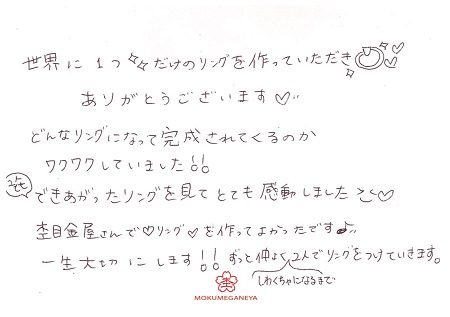 世界に1つだけのリングを作っていただき
ありがとうございます♡
どんなリングになって完成されてくるのか
ワクワクしていました!!
できあがったリングを見てとても感動しました♡
杢目金屋さんで♡リング♡を作ってよかったです♪
一生大切にします!!ずっと仲よく2人でリングをつけていきます。
しわくちゃになるまで
MOKUMEGANEYA